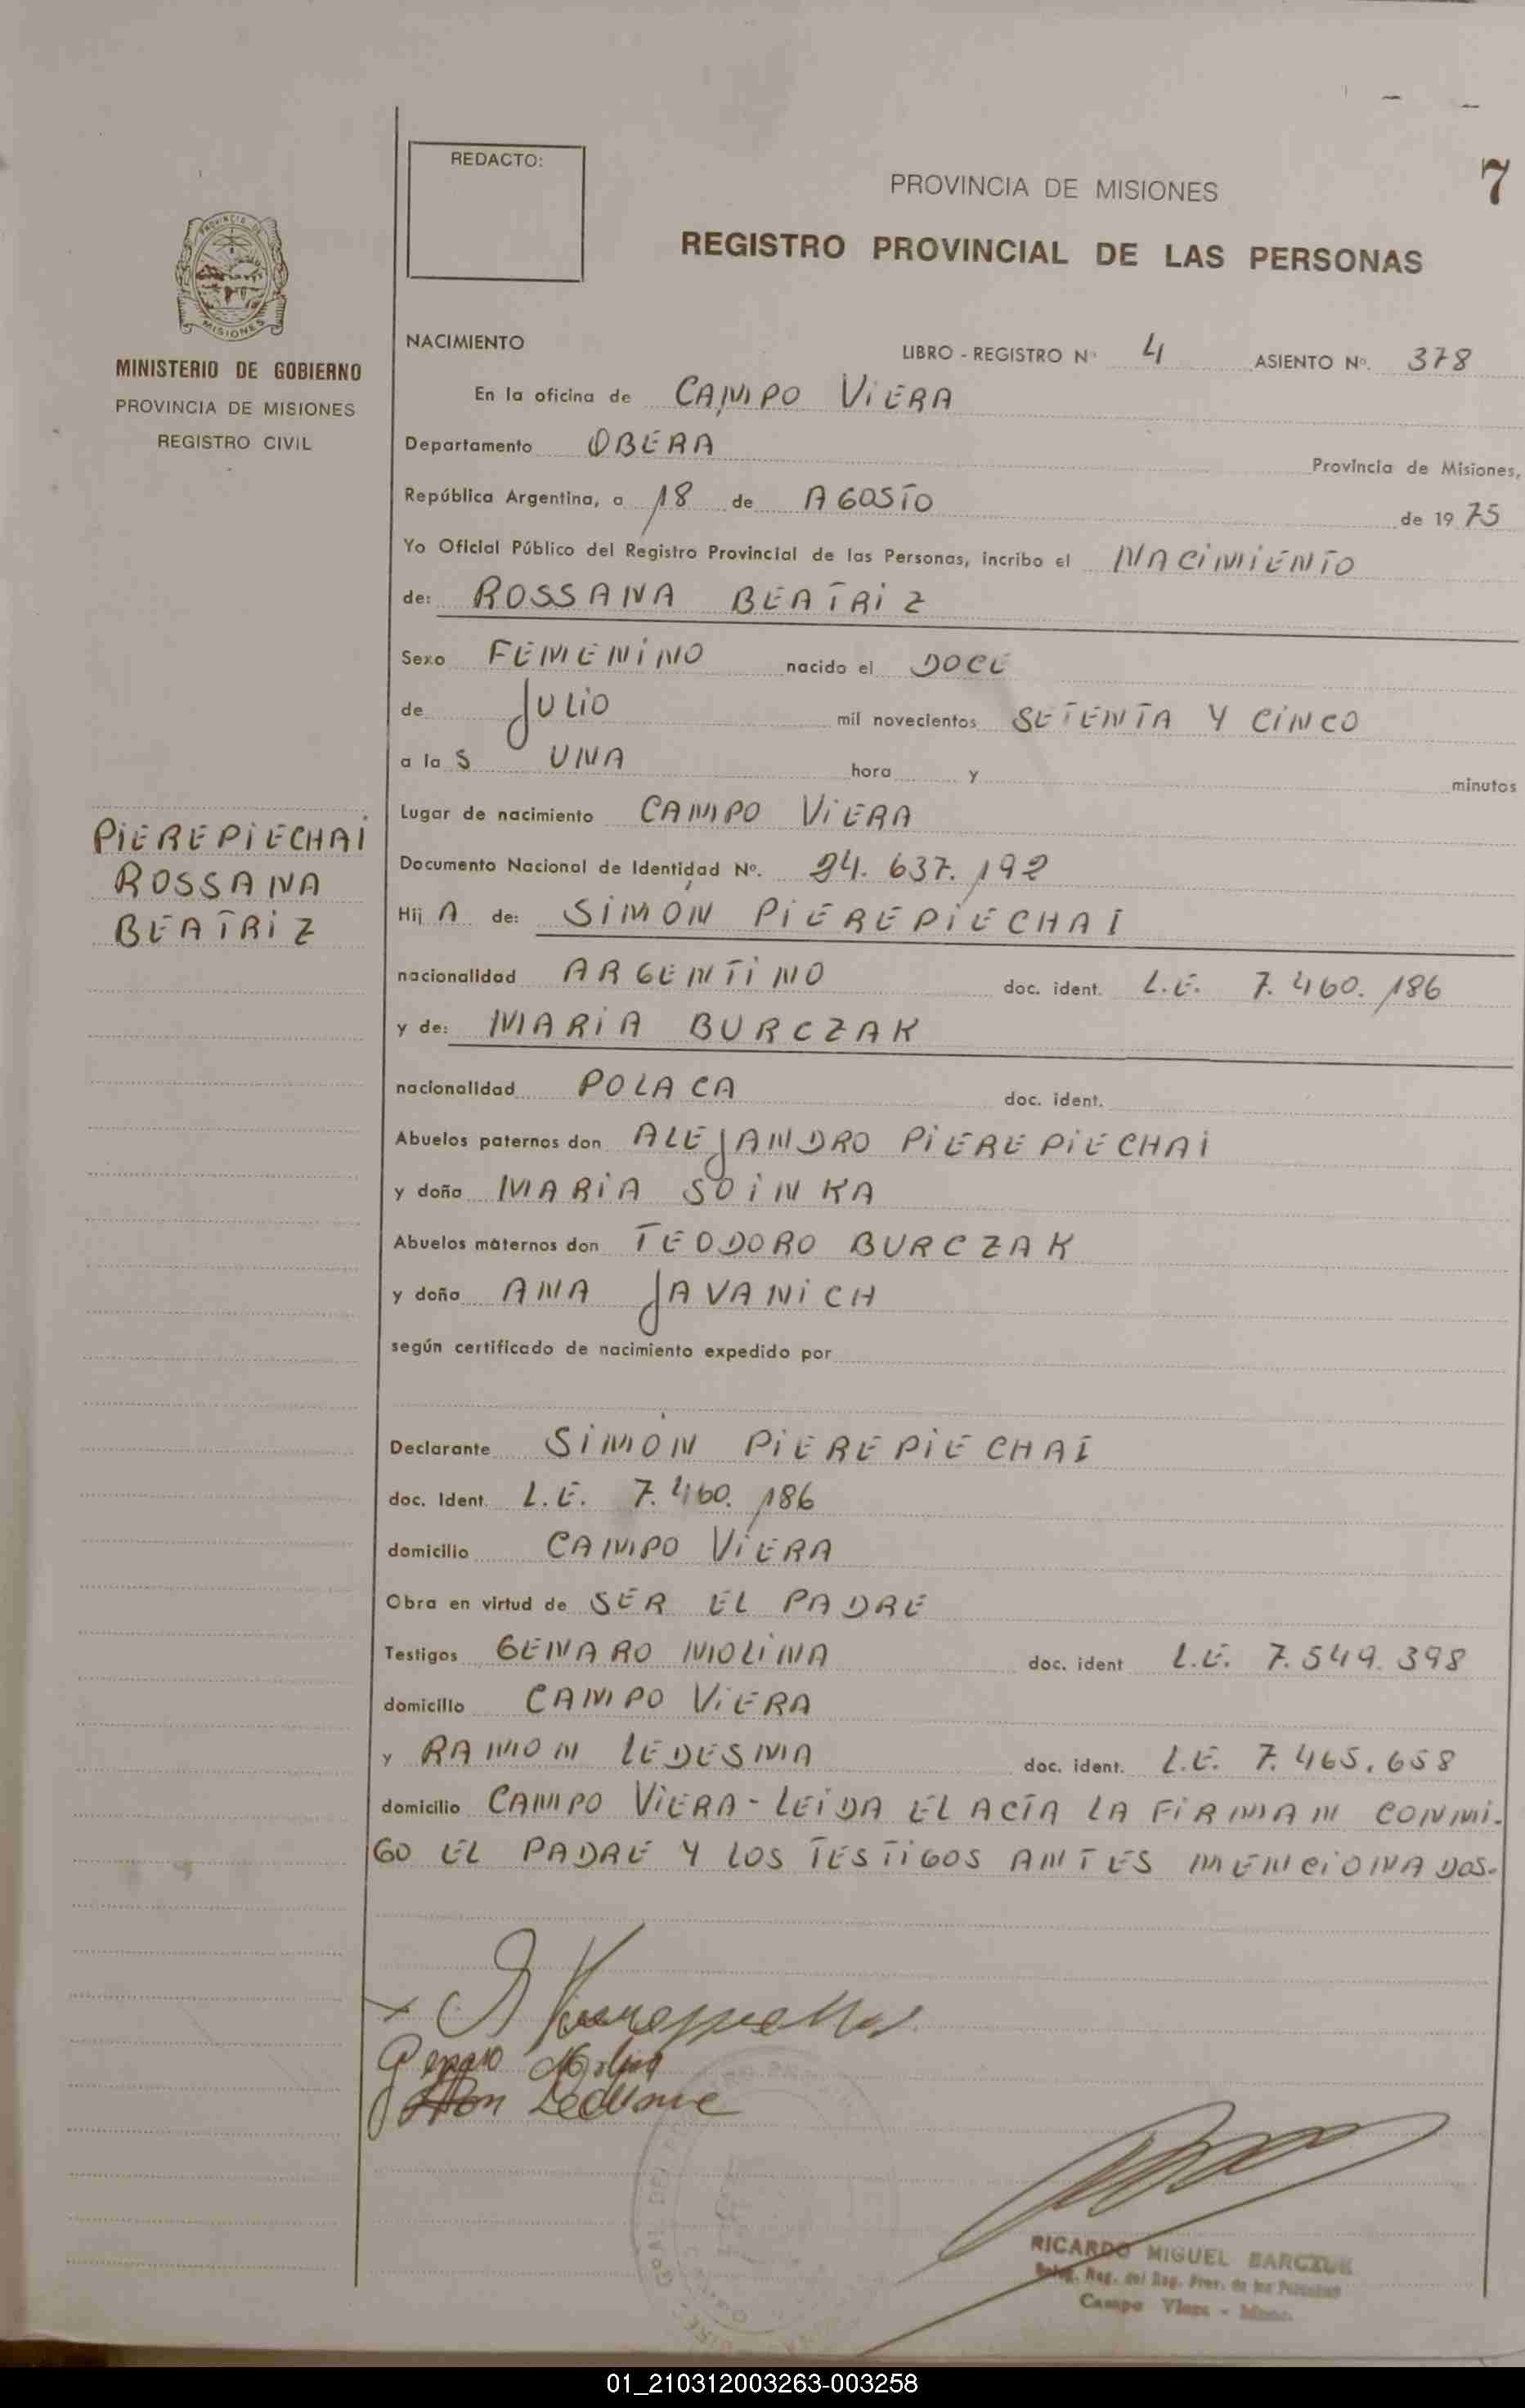 7
REDACTO:
PROVINCIA DE MISIONES
REGISTRO PROVINCIAL DE LAS PERSONAS
PROVINCIA DE
MISIONES
MINISTERIO DE GOBIERNO
PROVINCIA DE MISIONES
REGISTRO CIVIL
NACIMIENTO LIBRO - REGISTRO Nº 4 ASIENTO Nº. 378
En la oficina de CAMPO VIERA
Departamento OBERA Provincia de Misiones,
República Argentina, a 18 de AGOSTO de 1975
Yo Oficial Público del Registro Provincial de las Personas, incribo el NACIMIENTO
de: ROSSANA BEATRIZ
Sexo FEMENINO nacido el DOCE
de JULIO mil novecientos SETENTA Y CINCO
a la S UNA hora y minutos
PIEREPIECHAI
ROSSANA
BEATRIZ
Lugar de nacimiento CAMPO VIERA
Documento Nacional de Identidad Nº. 24.637.192
Hij A de: SIMON PIEREPIECHAI
nacionalidad ARGENTINO doc. ident. L.E. 7.460.186
y de: MARIA BURCZAK
nacionalidad POLACA doc. ident.
Abuelos paternos don ALEJANDRO PIEREPIECHAI
y doña MARIA SOINKA
Abuelos maternos don TEODORO BURCZAK
y doña ANA JAVANICH
según certificado de nacimiento expedido por
Declarante SIMON PIEREPIECHAI
doc. Ident. L.E. 7.460.186
domicilio CAMPO VIERA
Obra en virtud de SER EL PADRE
Testigos GENARO MOLINA doc. ident L.E. 7.549.398
domicilio CAMPO VIERA
y RAMON LEDESMA doc. ident. L.E. 7.465.658
domicilio CAMPO VIERA - LEIDA EL ACTA LA FIRMAN CONMI-
GO EL PADRE Y LOS TESTIGOS ANTES MENCIONADOS.
Genaro Molina
Ledesma
RICARDO MIGUEL BARCZUK
Deleg. Reg. del Reg. Prov. de las Personas
Campo Viera - Mnes.
01_210312003263-003258